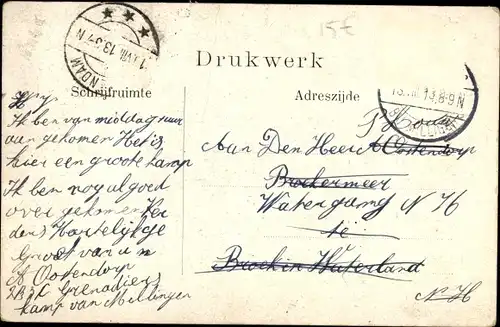 15€
1.VIII.13.8-7N
NDAM
13.8-9N
Drukwerk
Schrijfruimte
Adreszijde
Ik ben van middag
aan gekomen Het is
hier een groote kamp
Ik ben nog al goed
over gekomen
dens Hartelijkge
Groet van u n
H Oostendorp
Grenadiers
kamp van Millingen
Aan Den Heer Oostendorp
Broekermeer
Watergang N H
te
Broek in Waterland
N-H